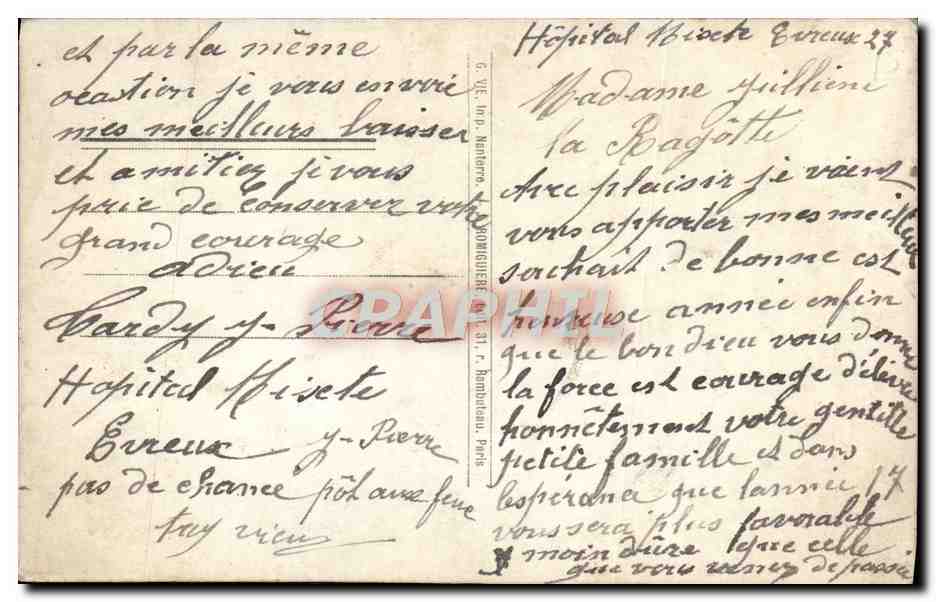 Hôpital Mixte Evreux 27
Madame Jullienne
la Ragôtte
Avec plaisir je vient
vous apporter mes meilleur
souhait de bonne est
heureuse année enfin
que le bon dieu vous donne
la force est courage d'élever
honnêtement votre gentille
petite famille et dans
l'espérance que lannée 17
vous sera plus favorable
moin dûre que celle
que vous venez de passé
et par la même
ocastion je vous envoie
mes meilleurs baiser
et amitiez je vous
prie de conserver votre
grand courage
adieu
Hardy y- Pierre
Hôpital Mixte
Evreux y- Pierre
pas de chance pôt aux feux
mon vieux
G. VIE, Imp. Nanterre. ROMIGUIERE, 31, r. Rambuteau, Paris
CRAPHIL